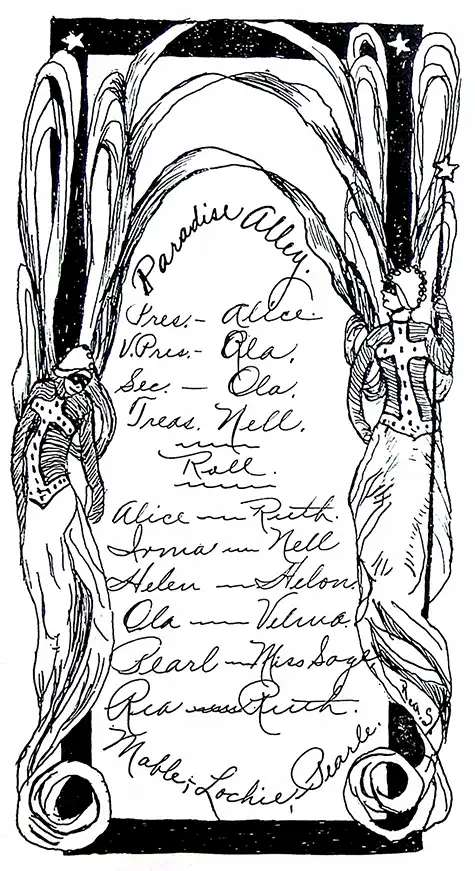 Paradise Alley.
Pres. - Alice.
V. Pres. - Ola.
Sec. - Ola.
Treas. Nell.
Roll.
Alice — Ruth.
Irma — Nell
Helen — Helon.
Ola — Velma.
Pearl — Miss Sage.
Rea — Ruth.
Mable, Lochie, Pearle.
Rea S